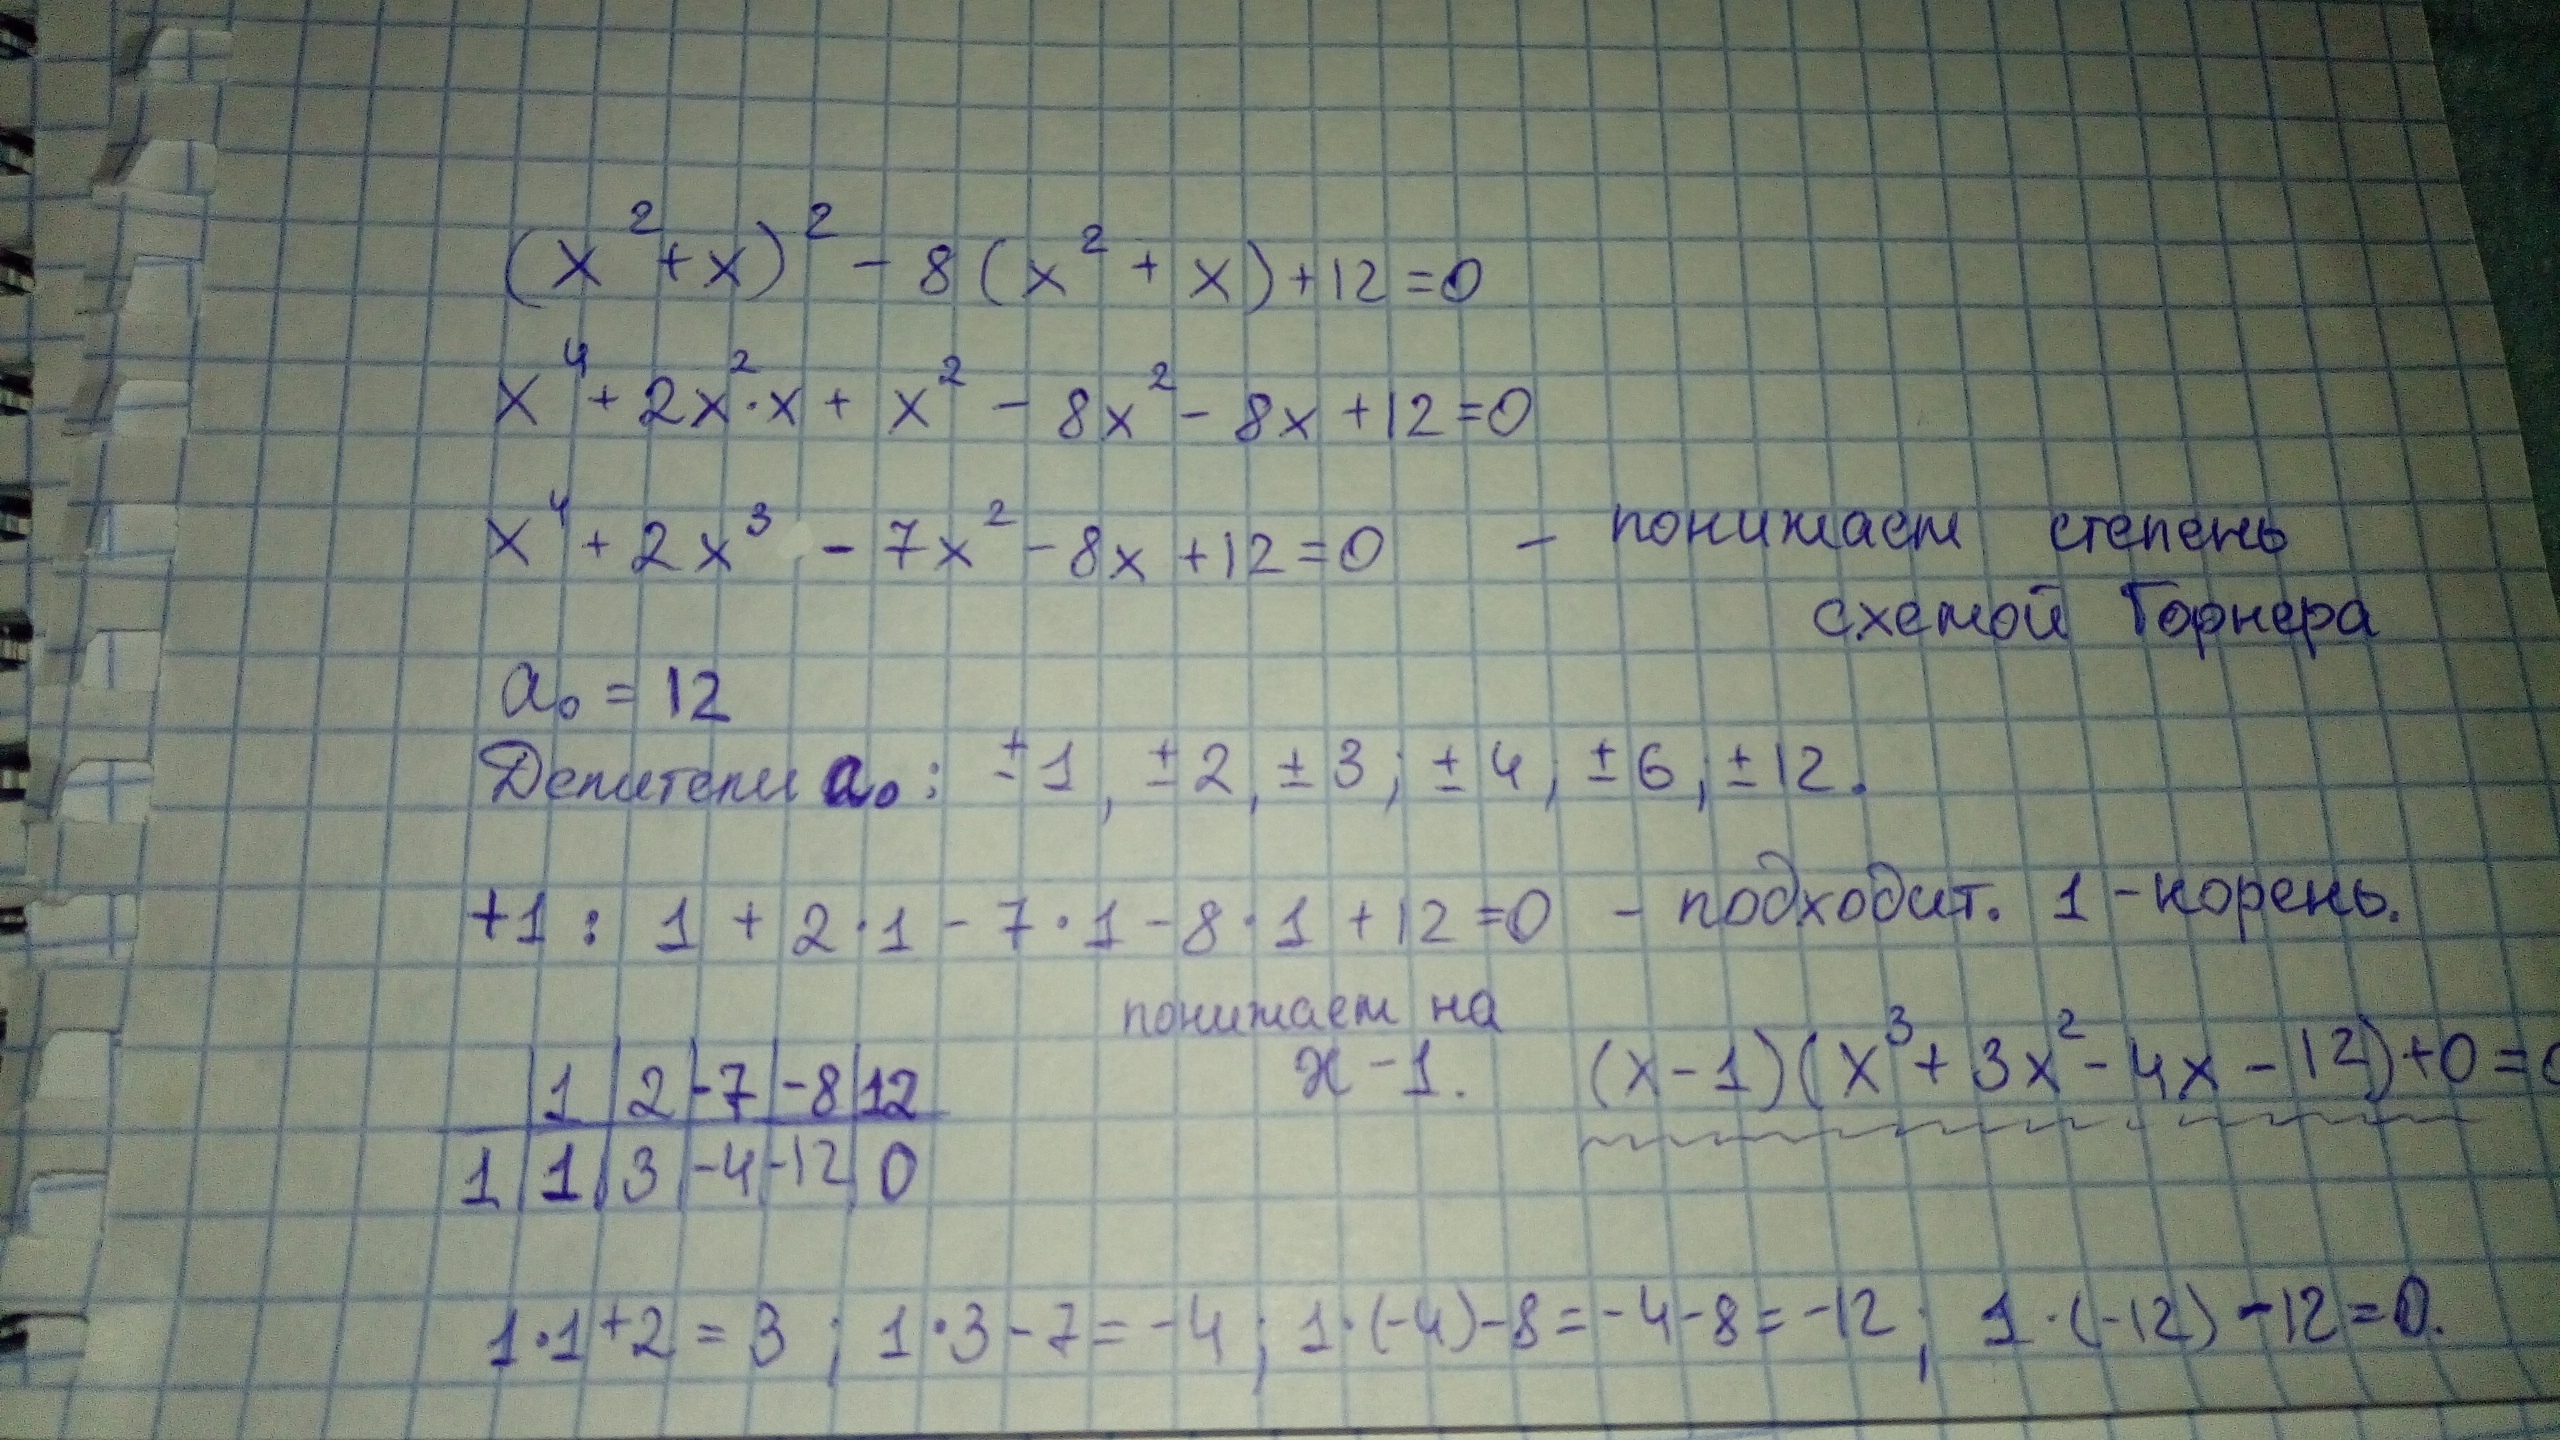 (x²+x)² - 8(x² + x) + 12 = 0
x⁴ + 2x²·x + x² - 8x² - 8x + 12 = 0
x⁴ + 2x³ - 7x² - 8x + 12 = 0 - понижаем степень
схемой Горнера
a₀ = 12
Делители a₀: ±1, ±2, ±3; ±4, ±6, ±12.
+1: 1 + 2·1 - 7·1 - 8·1 + 12 = 0 - подходит. 1 - корень.
понижаем на
x - 1. (x-1)(x³ + 3x² - 4x - 12) + 0 = 0
1 | 2 | -7 | -8 | 12
1 | 1 | 3 | -4 | -12 | 0
1·1+2 = 3; 1·3-7 = -4; 1·(-4)-8 = -4-8 = -12; 1·(-12) - 12 = 0.